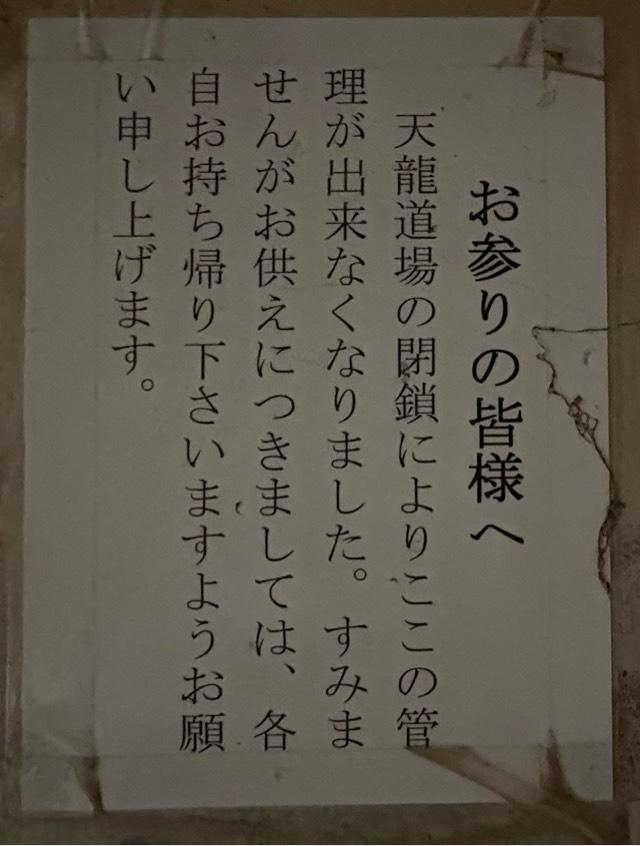 お参りの皆様へ
天龍道場の閉鎖によりここの管
理が出来なくなりました。すみま
せんがお供えにつきましては、各
自お持ち帰り下さいますようお願
い申し上げます。